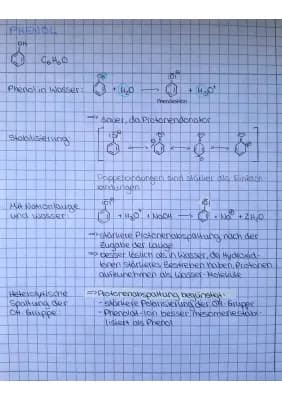 PHENOL
OH
C₆H₆O
Phenol in Wasser: + H₂O → + H₃O⁺
Phenolation
→ sauer, da Protonendonator
Stabilisierung
Doppelbindungen sind stärker als Einfach-
bindungen
Mit Natronlauge und Wasser: + H₃O⁺ + NaOH → + Na⊕ + 2H₂O
→ stärkere Protonenabspaltung nach der
Zugabe der Lauge
→ besser löslich als in Wasser, da Hydroxid-
Ionen stärkeres Bestreben haben, Protonen
aufzunehmen als Wasser-Moleküle
Heterolytische Spaltung der OH-Gruppe:
⇒ Protonenabspaltung begünstigt
- stärkere Polarisierung der OH-Gruppe
- Phenolat-Ion besser mesomeriestabi-
lisiert als Phenol